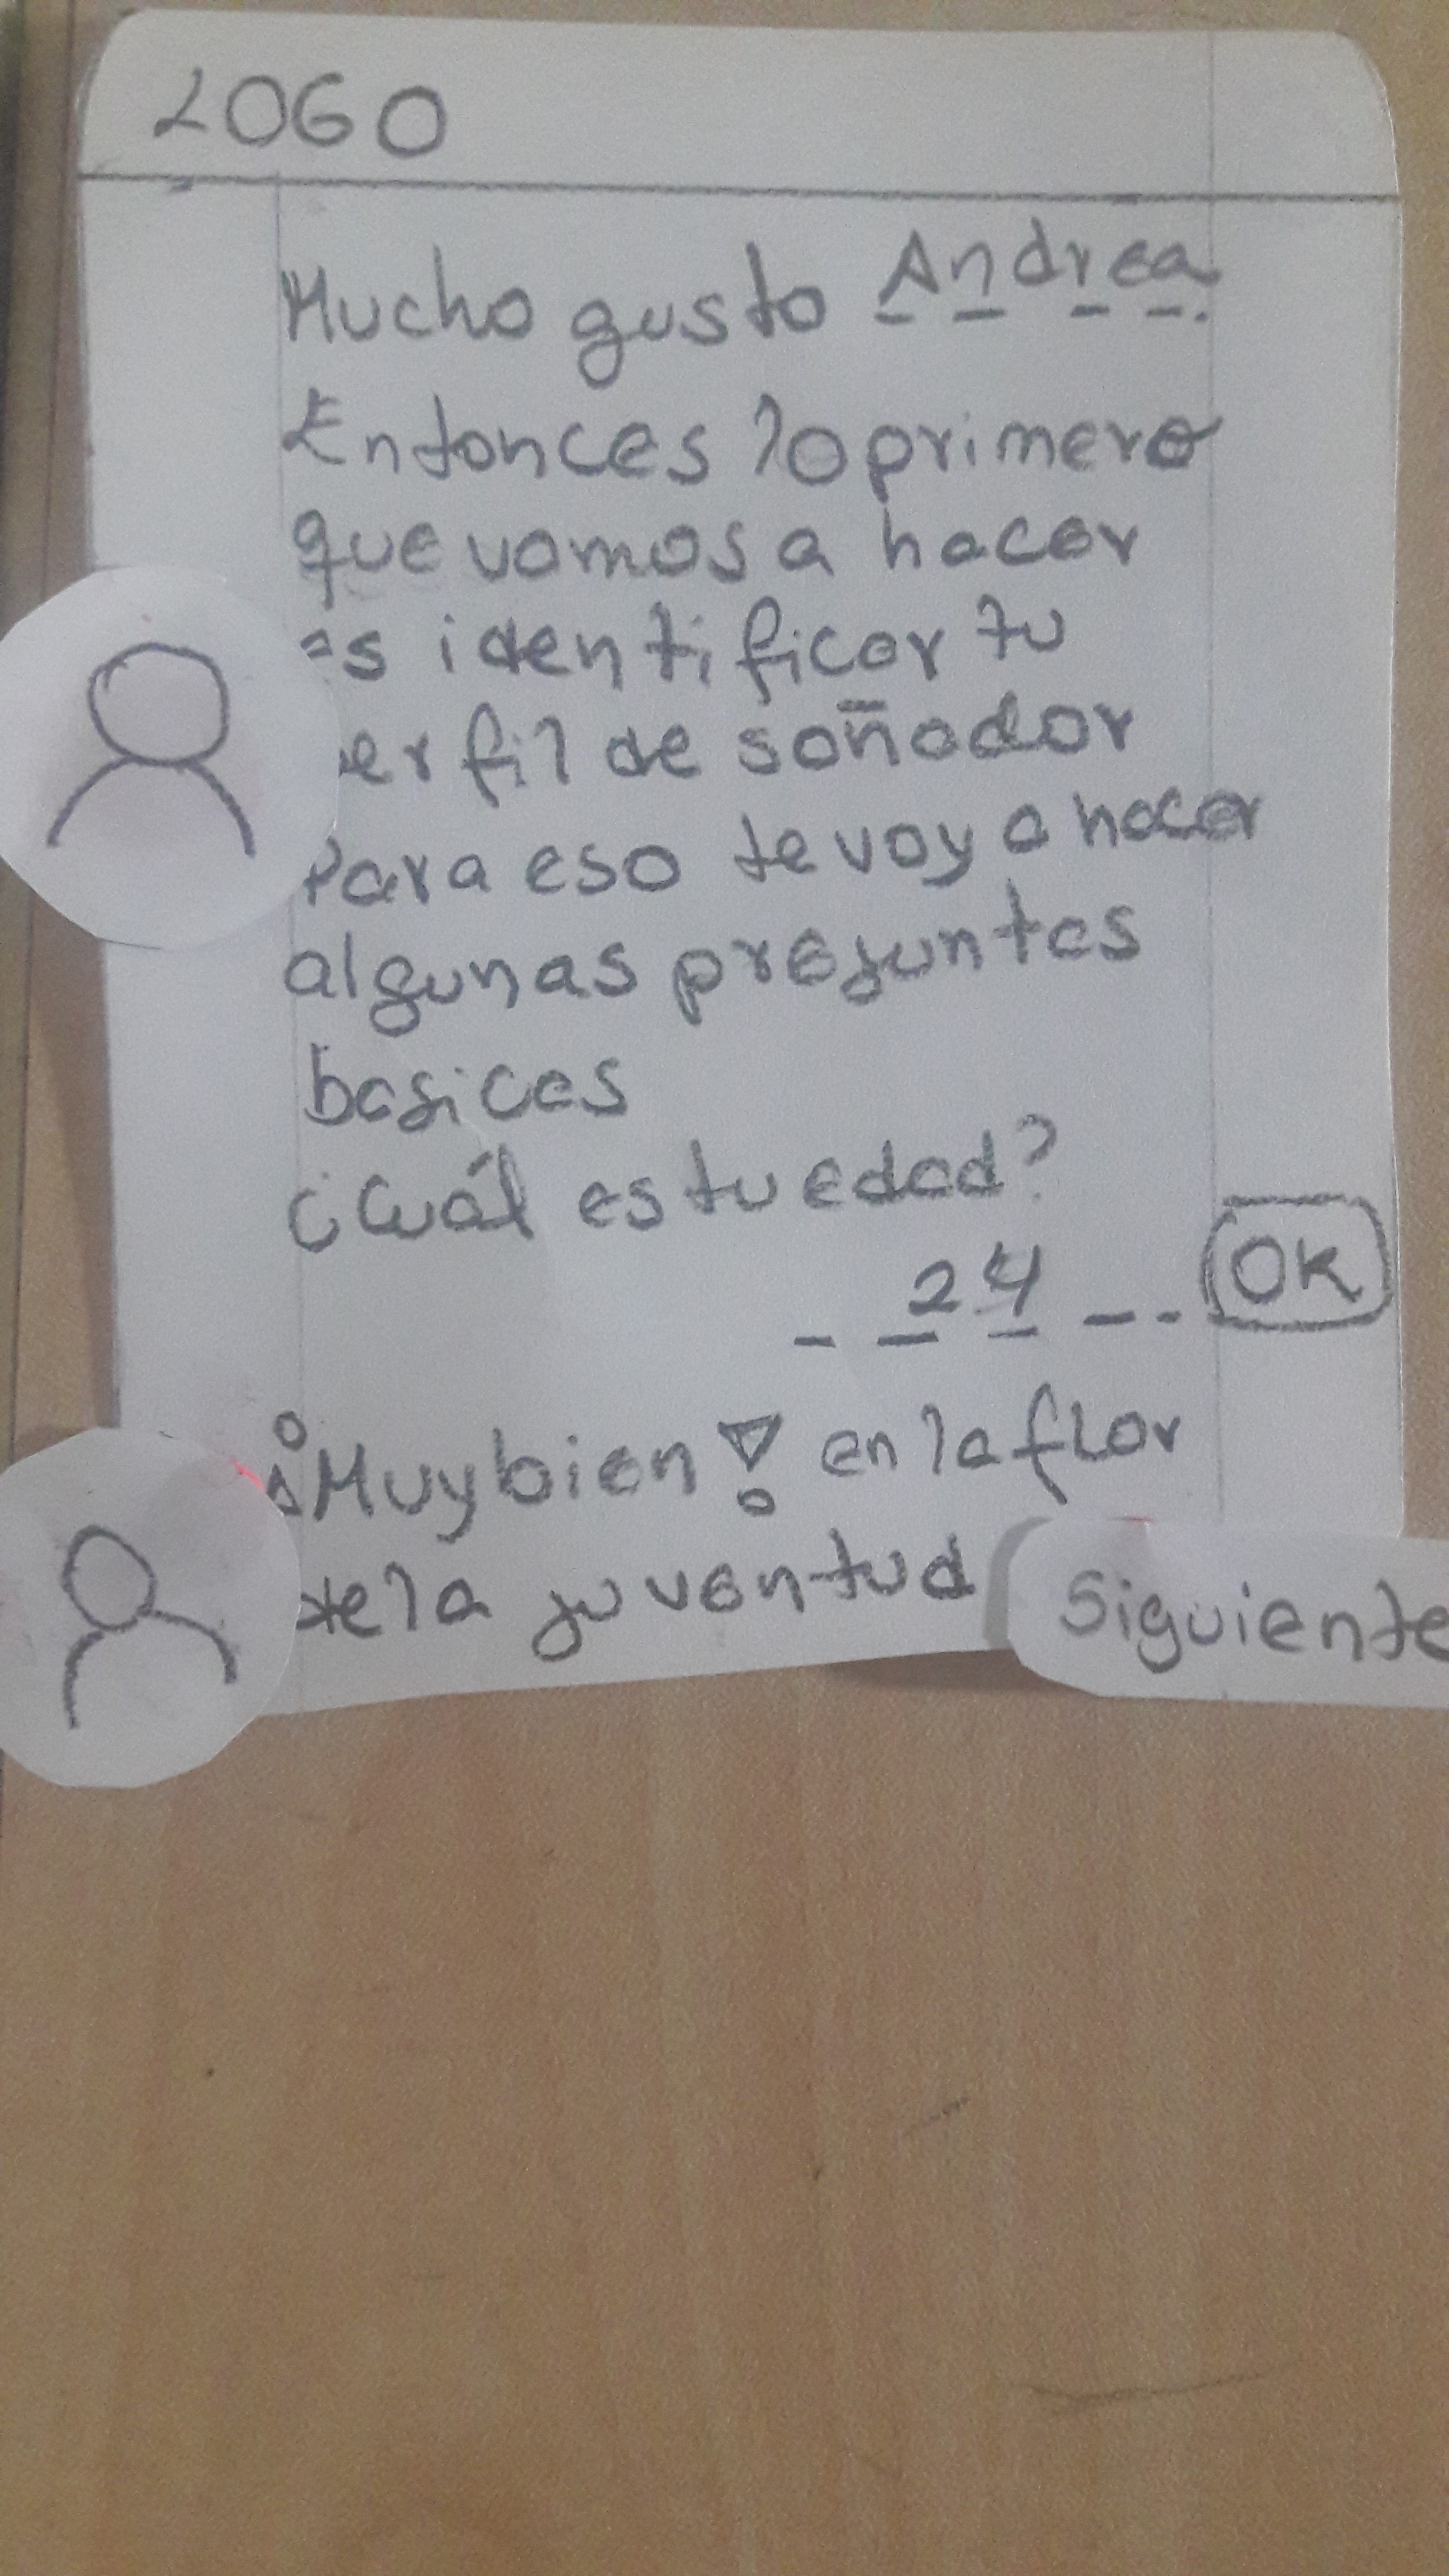 LOGO
Mucho gusto Andrea.
Entonces lo primero
que vamos a hacer
es identificar tu
erfil de soñador
Para eso te voy a hacer
algunas preguntas
basicas
¿Cuál es tu edad?
24 OK
¡Muy bien! en la flor
de la juventud
Siguiente